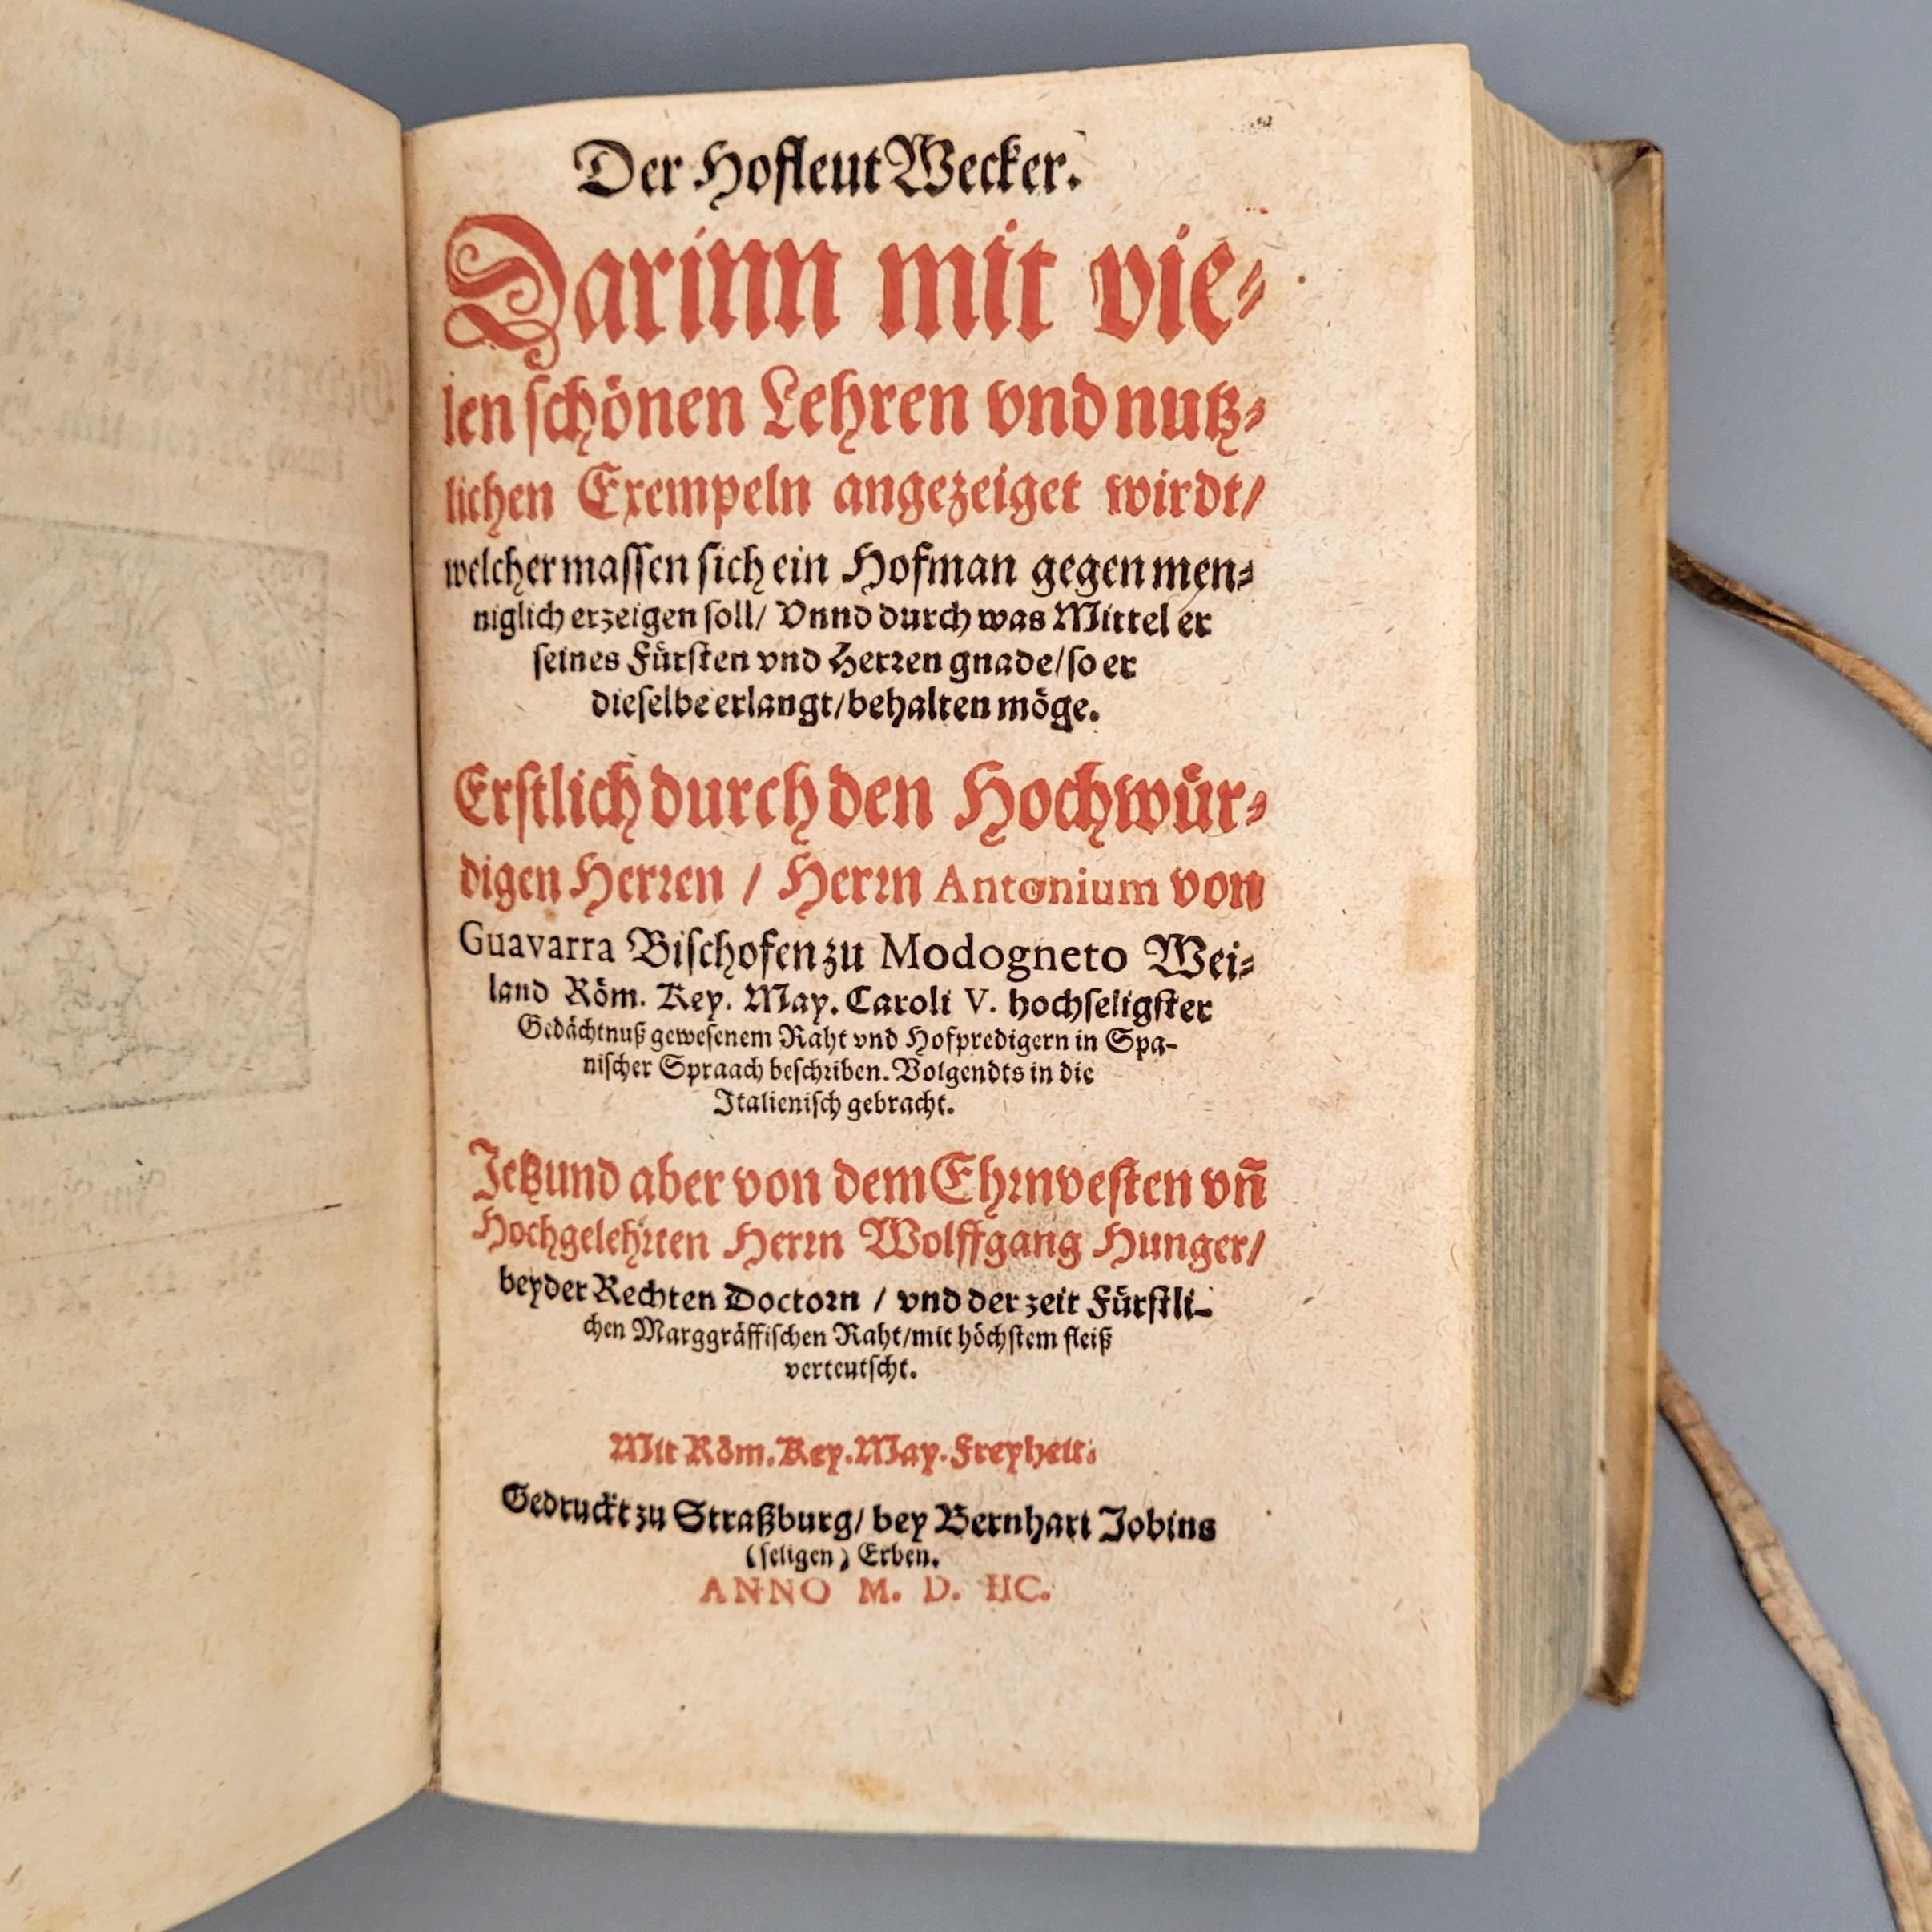 Der Hofleut Wecker.
Darinn mit vie-
len schönen Lehren vnd nutz-
lichen Exempeln angezeiget wirdt/
welcher massen sich ein Hofman gegen men-
niglich erzeigen soll/ Vnnd durch was Mittel er
seines Fürsten vnd Herren gnade/ so er
dieselbe erlangt/ behalten möge.
Erstlich durch den Hochwür-
digen Herren / Herrn Antonium von
Guavarra Bischofen zu Modogneto Wei-
land Röm. Key. May. Caroli V. hochseligster
Gedächtnuß gewesenem Raht vnd Hofpredigern in Spa-
nischer Spraach beschriben. Volgendts in die
Italienisch gebracht.
Jetzund aber von dem Ehrnvesten vñ
Hochgelehrten Herrn Wolffgang Hunger/
beyder Rechten Doctorn / vnd der zeit Fürstli-
chen Marggräffischen Raht/ mit höchstem fleiß
verteutscht.
Mit Röm. Key. May. Freyheit.
Gedruckt zu Straßburg/ bey Bernhart Jobins
(seligen) Erben.
ANNO M. D. IIC.